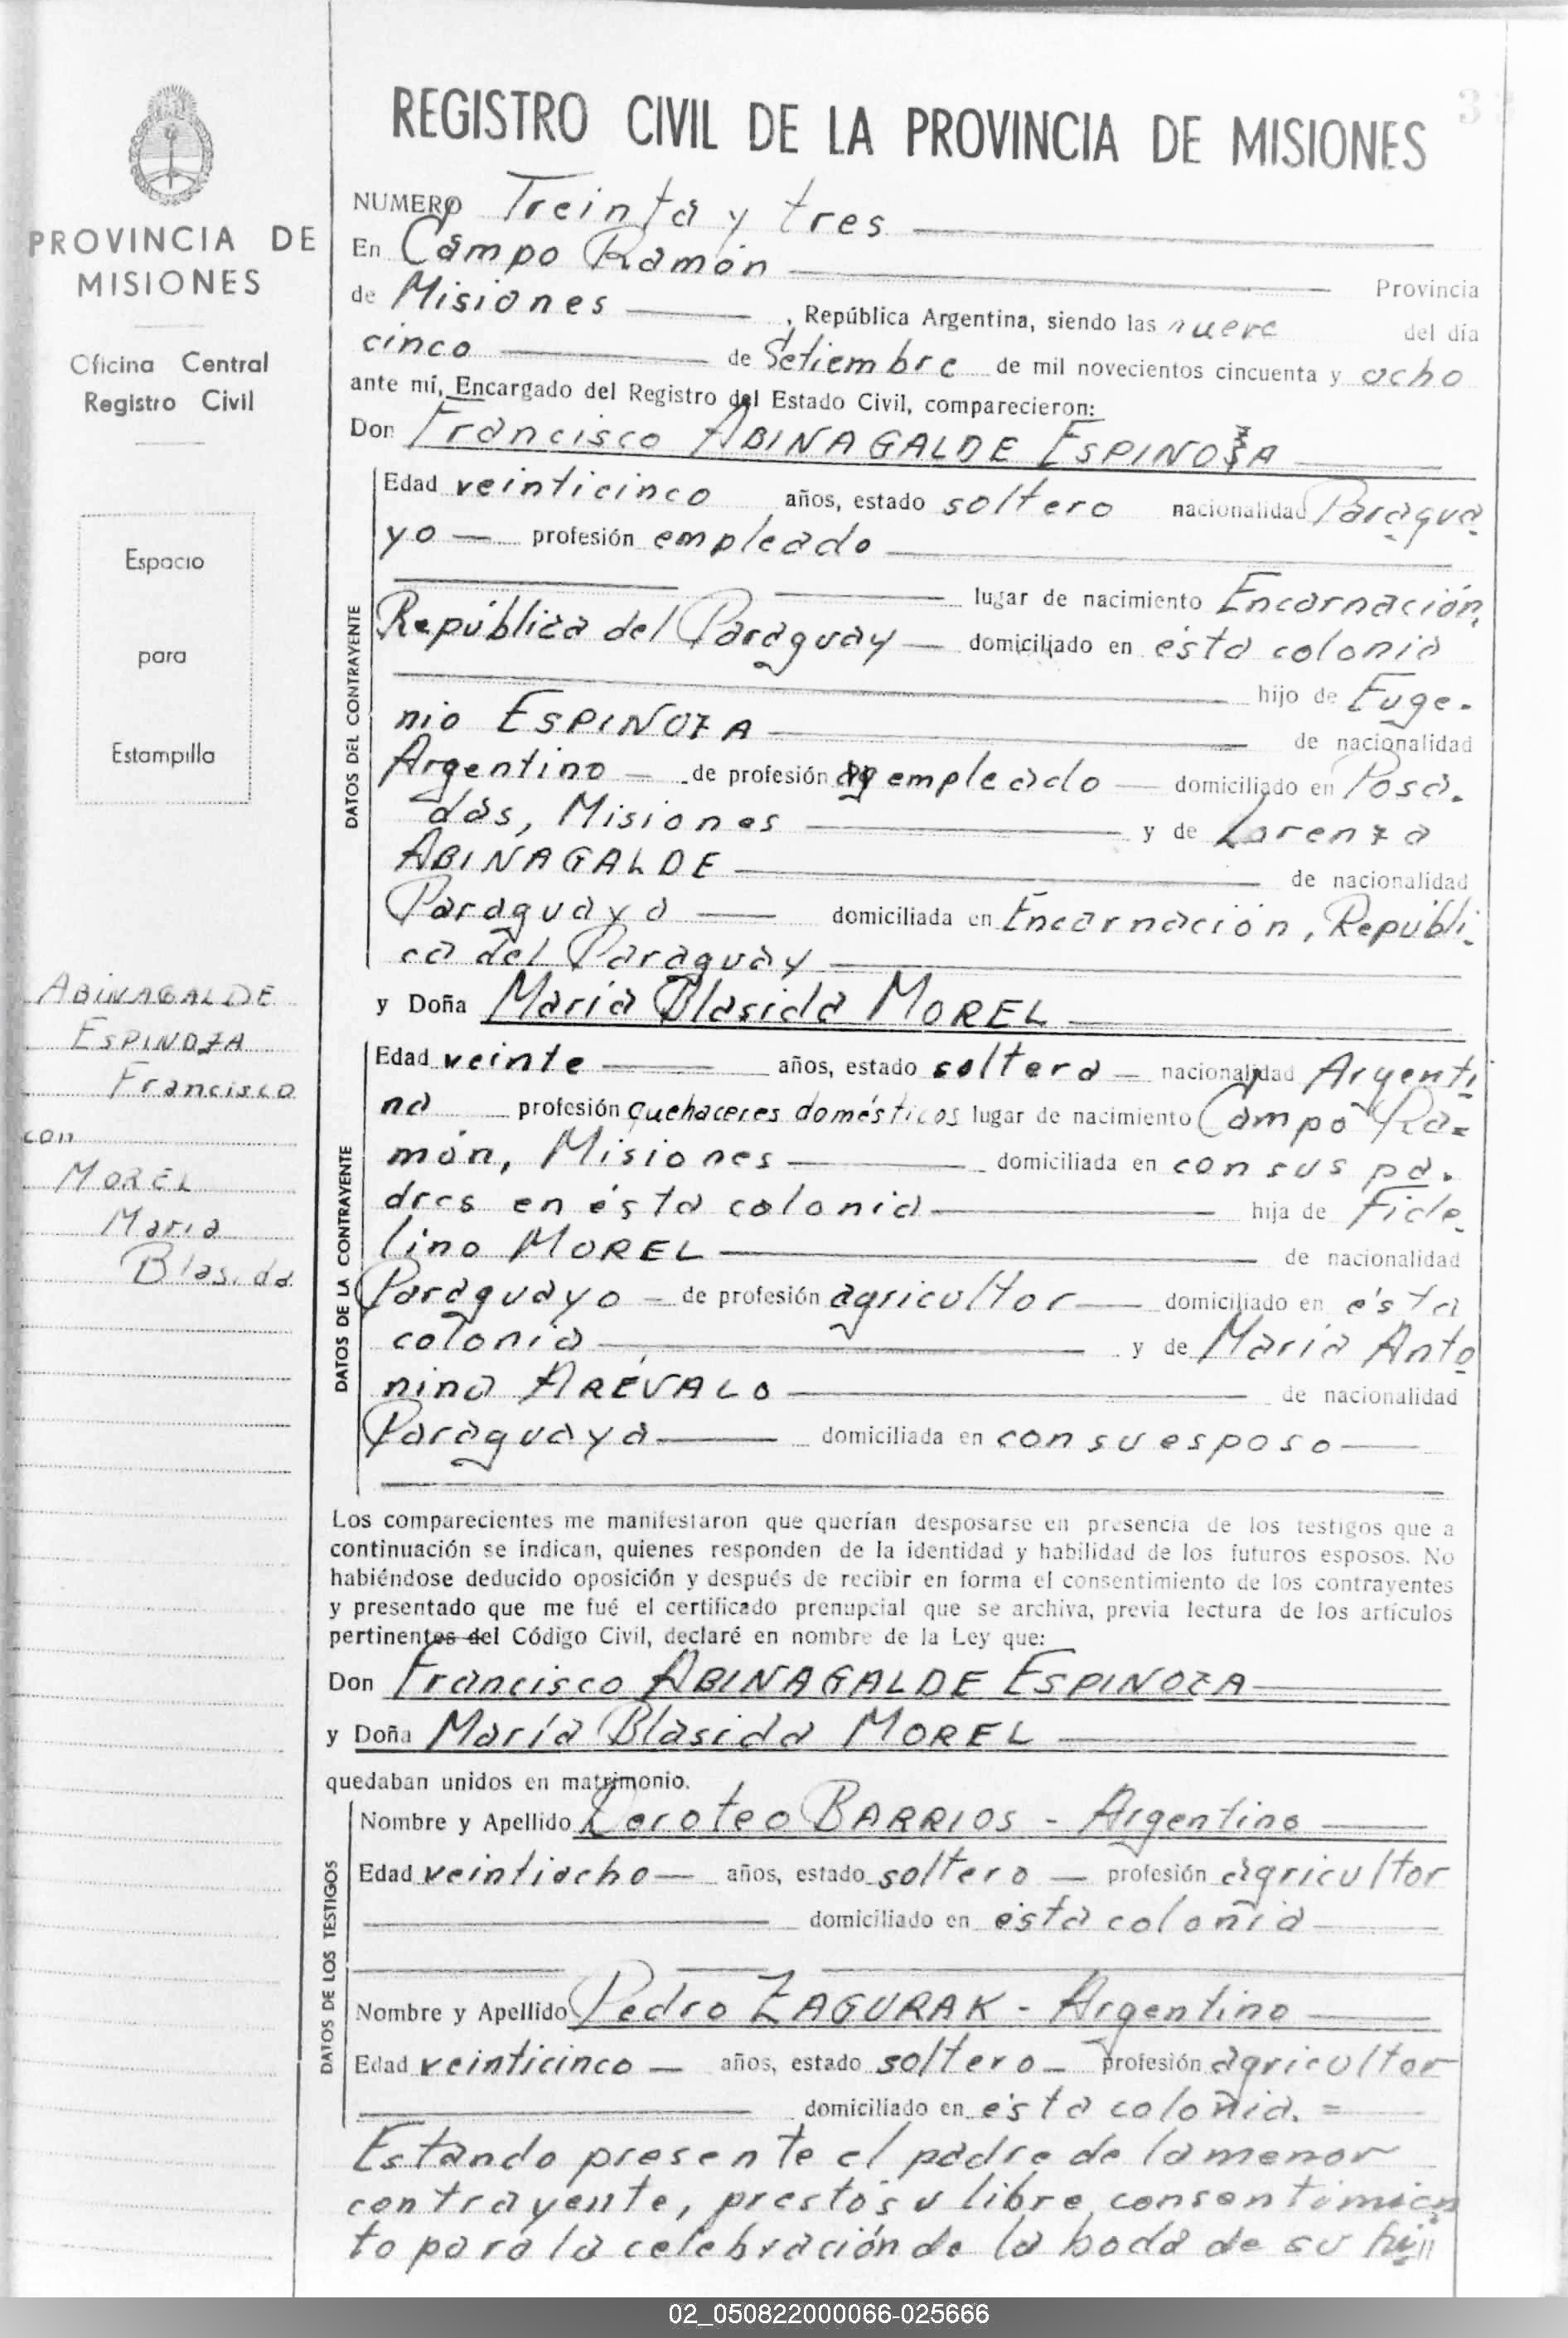 33
REGISTRO CIVIL DE LA PROVINCIA DE MISIONES
PROVINCIA DE
MISIONES
Oficina Central
Registro Civil
Espacio
para
Estampilla
ABINAGALDE
ESPINOZA
Francisco
con
MOREL
Maria
Blasida
NUMERO Treinta y tres
En Campo Ramón Provincia
de Misiones, República Argentina, siendo las nueve del día
cinco de Setiembre de mil novecientos cincuenta y ocho
ante mí, Encargado del Registro del Estado Civil, comparecieron:
Don Francisco ABINAGALDE ESPINOZA
DATOS DEL CONTRAYENTE
Edad veinticinco años, estado soltero nacionalidad Paragua
yo profesión empleado
lugar de nacimiento Encarnación,
República del Paraguay domiciliado en ésta colonia
hijo de Euge-
nio ESPINOZA de nacionalidad
Argentino de profesión empleado domiciliado en Posa-
das, Misiones y de Lorenza
ABINAGALDE de nacionalidad
Paraguaya domiciliada en Encarnación, Repúbli-
ca del Paraguay
y Doña María Blasida MOREL
DATOS DE LA CONTRAYENTE
Edad veinte años, estado soltera nacionalidad Argenti
na profesión quehaceres domésticos lugar de nacimiento Campo Ra=
món, Misiones domiciliada en con sus pa-
dres en ésta colonia hija de Fide-
lino MOREL de nacionalidad
Paraguayo de profesión agricultor domiciliado en ésta
colonia y de María Anto
nina ARÉVALO de nacionalidad
Paraguaya domiciliada en con su esposo
Los comparecientes me manifestaron que querían desposarse en presencia de los testigos que a
continuación se indican, quienes responden de la identidad y habilidad de los futuros esposos. No
habiéndose deducido oposición y después de recibir en forma el consentimiento de los contrayentes
y presentado que me fué el certificado prenupcial que se archiva, previa lectura de los artículos
pertinentes del Código Civil, declaré en nombre de la Ley que:
Don Francisco ABINAGALDE ESPINOZA
y Doña María Blasida MOREL
quedaban unidos en matrimonio.
DATOS DE LOS TESTIGOS
Nombre y Apellido Doroteo BARRIOS - Argentino
Edad veintiocho años, estado soltero profesión agricultor
domiciliado en ésta colonia
Nombre y Apellido Pedro ZAGURAK - Argentino
Edad veinticinco años, estado soltero profesión agricultor
domiciliado en ésta colonia. =
Estando presente el padre de la menor
contrayente, prestó su libre consentimien
to para la celebración de la boda de su hij
02_050822000066-025666